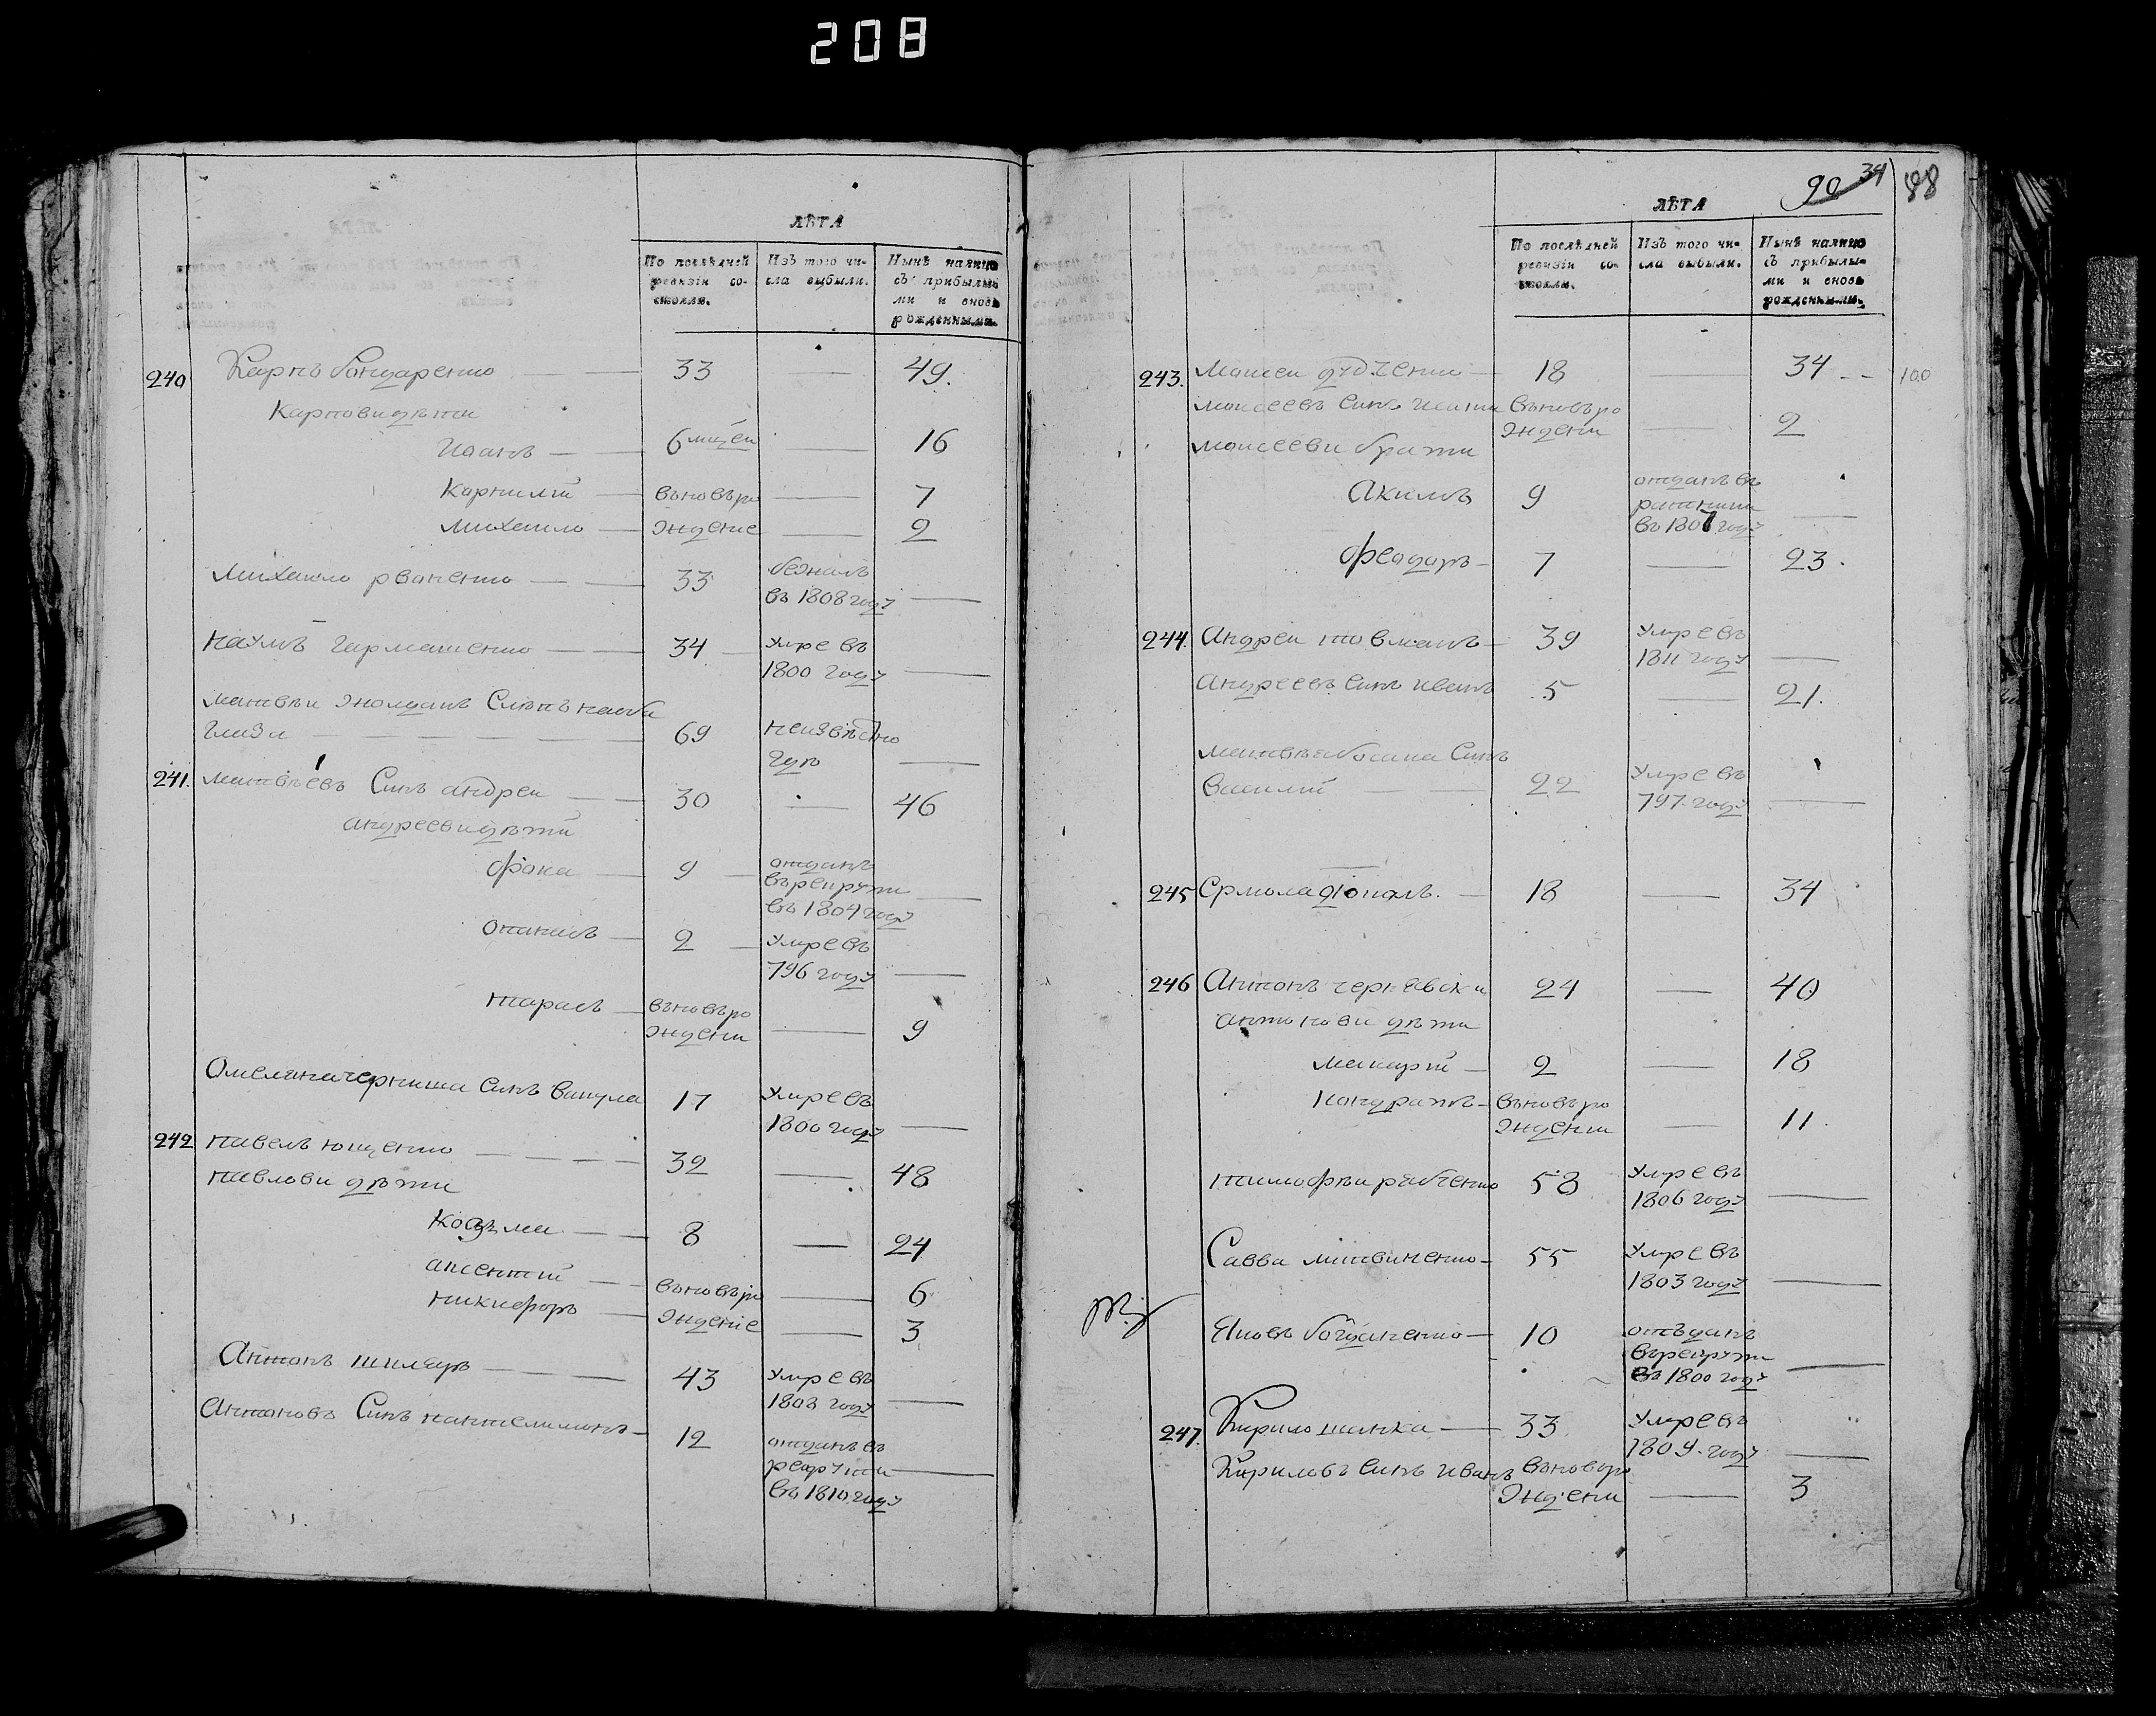 208
ЛѢТА
По послѣдней ревизіи состояло.
Изъ того числа выбыли.
Нынѣ налицо съ прибылыми и вновь рожденными.
240 Карпъ бондаренко 33 49.
Карпови дѣти
Иванъ 6 мцей 16
Корнилїй вновьро 7
Михаило жденїе 2
Михаило рваченко 33 бежалъ
въ 1808 году
Наумъ гармашенко 34 Умре въ
1800 году
Матвѣи
69 неизвѣстно
где
241. Матвѣевъ Синъ андреи 30 46
андрееви дѣтї
Фока 9 отданъ
врекрути
въ 1804 году
опанасъ 2 Умре въ
796 году
тарасъ вновьро
ждени 9
Омеляна черниша синъ вакула 17 Умре въ
1800 году
242 павелъ ющенко 32 48
павлови дѣти
Козма 8 24
аксентїй вновьро 6
никифоръ жденїе 3
Антонъ шкляръ 43 Умре въ
1803 году
Антоновъ Синъ пантелимонъ 12 отданъ въ
рекрути
въ 1810 году
90 34 88
ЛѢТА
По послѣдней ревизіи состояло.
Изъ того числа выбыли.
Нынѣ налицо съ прибылыми и вновь рожденными.
243. Моисеи 18 34 100
моисеевъ синъ вновьро
ждени 2
моисееви брати
Акимъ 9 отданъ въ
ратники
въ 1807 году
Феодоръ 7 23.
244. Андреи товмачъ 39 Умре въ
1811 году
андреевъ синъ иванъ 5 21.
Синъ
Василїй 22 Умре въ
797 году
245 Ермола 18 34
246 Антонъ черневски 24 40
антонови дѣти
макарїй 2 18
Кондратъ вновьро
ждени 11.
тимофѣи рябченко 58 Умре въ
1806 году
Савва литвиненко 55 Умре въ
1803 году
Яковъ богданенко 10 отъданъ
врекрути
въ 1800 году
247. Кирило шапка 33 Умре въ
1809. году
Кириловъ синъ иванъ вновьро
ждени 3